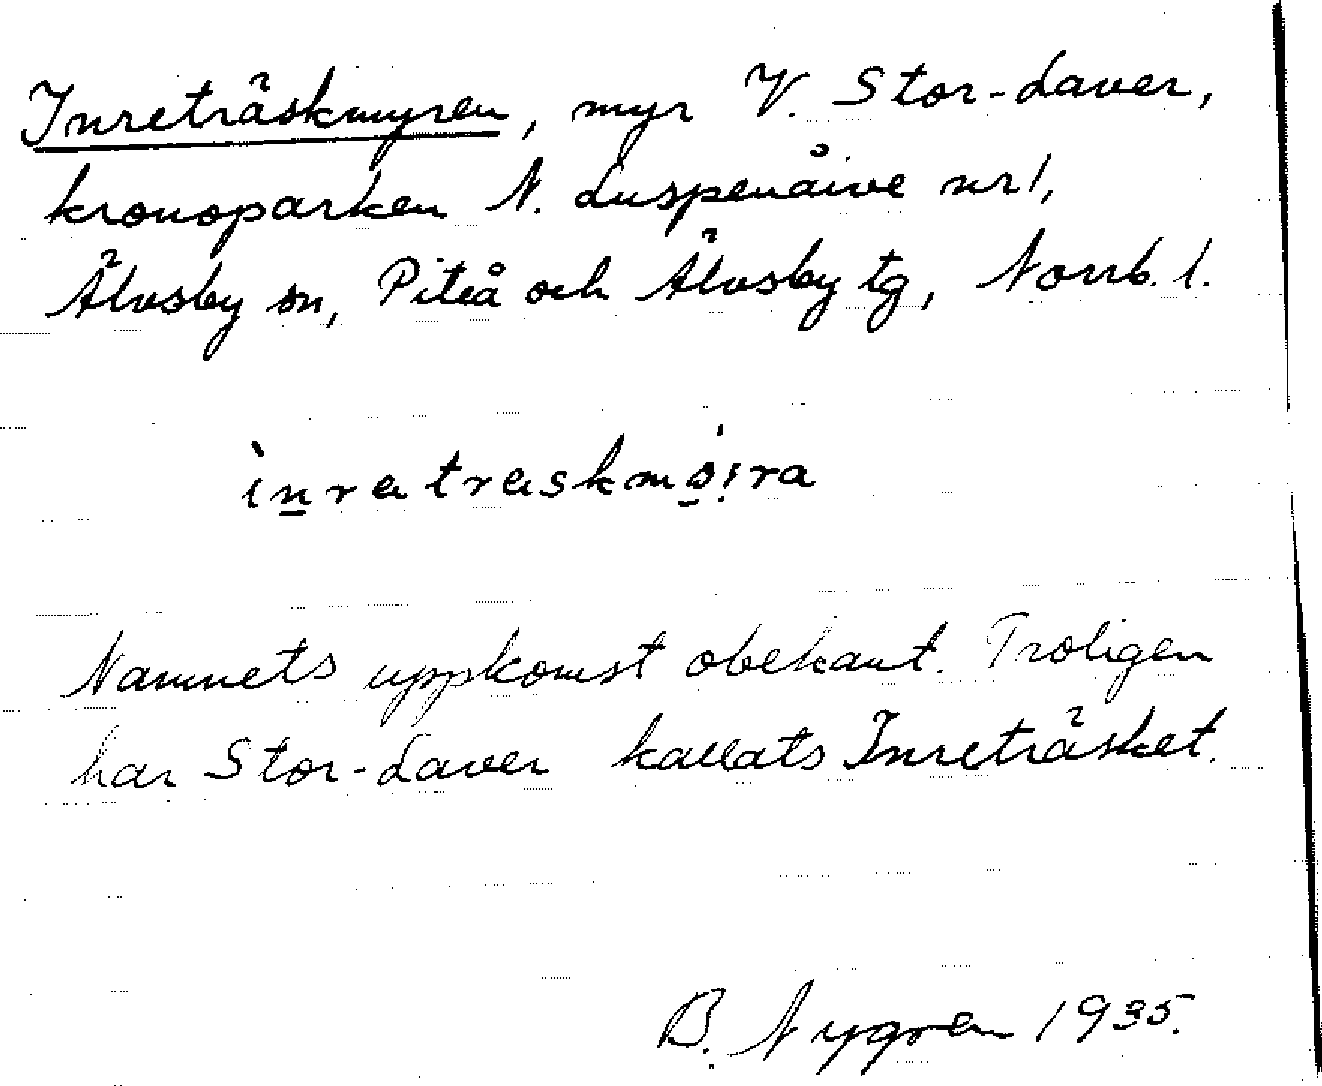 Inreträskmyren, myr V. Stor-Laver,
kronoparken N. Luspenåive nr 1,
Älvsby sn, Piteå och Älvsby tg, Norrb. l.
ìn̲retraskmǿ̲i̯ra
Namnets uppkomst obekant. Troligen
har Stor-Laver kallats Inreträsket.
B. Nygren 1935.